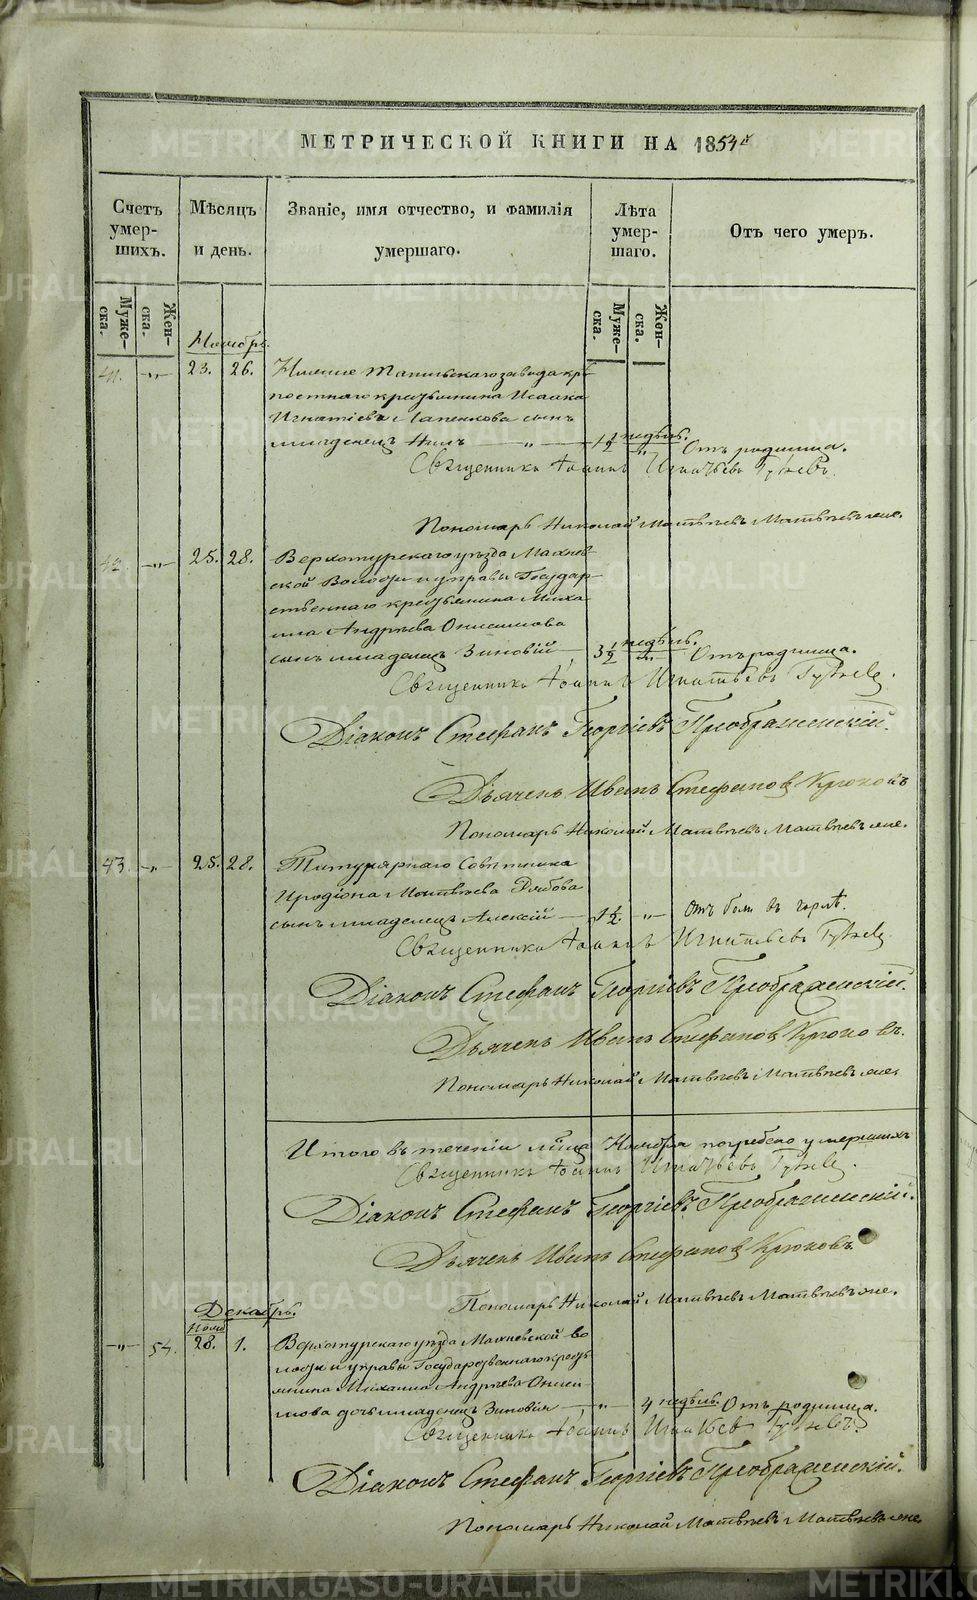 МЕТРИЧЕСКОЙ КНИГИ НА 1854й
Счетъ умер-шихъ.
Мѣсяцъ и день.
Званіе, имя отчество, и фамилія умершаго.
Лѣта умер-шаго.
Отъ чего умеръ.
Муже-ска.
Жен-ска.
Муже-ска.
Жен-ска.
Ноябрь.
41. -„- 23. 26.
Тагильскаго завода крѣ
постнаго крестьянина Исаака
Игнатіева сынъ
младенецъ Нилъ -„- 1½ недѣль. -„- Отъ родимца.
Священникъ Іоаннъ Игнатьевъ
Пономарь Николай Матвѣевъ
42. -„- 25. 28.
Верхотурскаго уѣзда Махнев-
ской Волости и управы Государ-
ственнаго крестьянина Миха
ила Андрѣева Онисимова
сынъ младенецъ Зиновій 3½ недѣль. -„- Отъ родимца.
Священникъ Іоаннъ Игнатьевъ
Діаконъ Стефанъ Георгіевъ Преображенскій.
Дьячекъ Иванъ Стефановъ Крюковъ
Пономарь Николай Матвѣевъ
43. -„- 25. 28.
Титулярнаго Совѣтника
Иродіона Матвѣева Рябова
сынъ младенецъ Алексій 1½. „ Отъ боли въ горлѣ.
Священникъ Іоаннъ Игнатьевъ
Діаконъ Стефанъ Георгіевъ Преображенскій.
Дьячекъ Иванъ Стефановъ Крюковъ.
Пономарь Николай Матвѣевъ
Итого въ теченіи Ноября погребено умершихъ
Священникъ Іоаннъ Игнатьевъ
Діаконъ Стефанъ Георгіевъ Преображенскій.
Дьячекъ Иванъ Стефановъ Крюковъ.
Пономарь Николай Матвѣевъ
Декабрь.
Нояб
-„- 54. 28. 1.
Верхотурскаго уѣзда Махневской во
лости и управы Государственнаго кресть
янина Михаила Андрѣева Ониси
мова дочь младенецъ Зиновія -„- 4 недѣль. Отъ родимца.
Священникъ Іоаннъ Игнатьевъ
Діаконъ Стефанъ Георгіевъ Преображенскій.
Пономарь Николай Матвѣевъ
METRIKI.GASO-URAL.RU